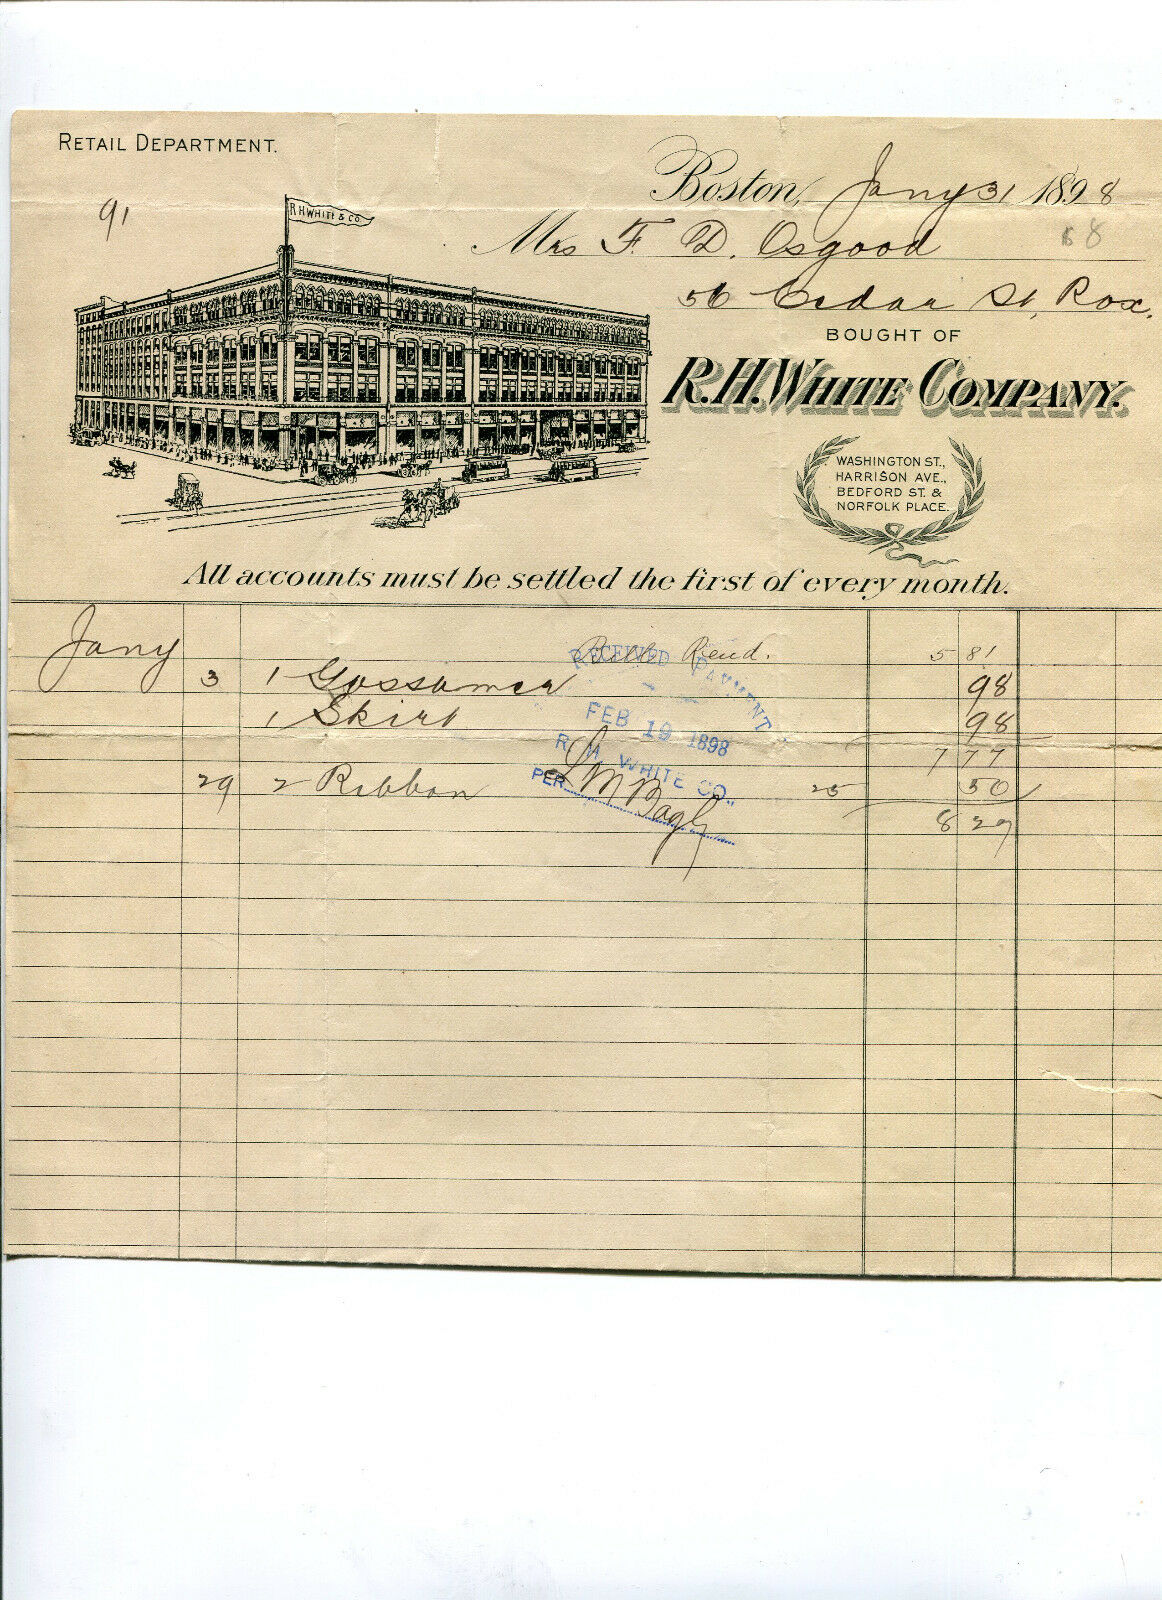 RETAIL DEPARTMENT.
91
R H WHITE & CO.
Boston, Jany 31 1898
Mrs F. D. Osgood
8
56 Cedar St, Rox.
BOUGHT OF
R.H. WHITE COMPANY.
WASHINGTON ST.,
HARRISON AVE.,
BEDFORD ST. &
NORFOLK PLACE.
All accounts must be settled the first of every month.
Jany Bill Rend. 5 81
3 1 Gossamer 98
1 Skirt 98
7 77
29 2 Ribbon 25 50
8 27
RECEIVED PAYMENT
FEB 19 1898
R. H. WHITE CO.,
PER